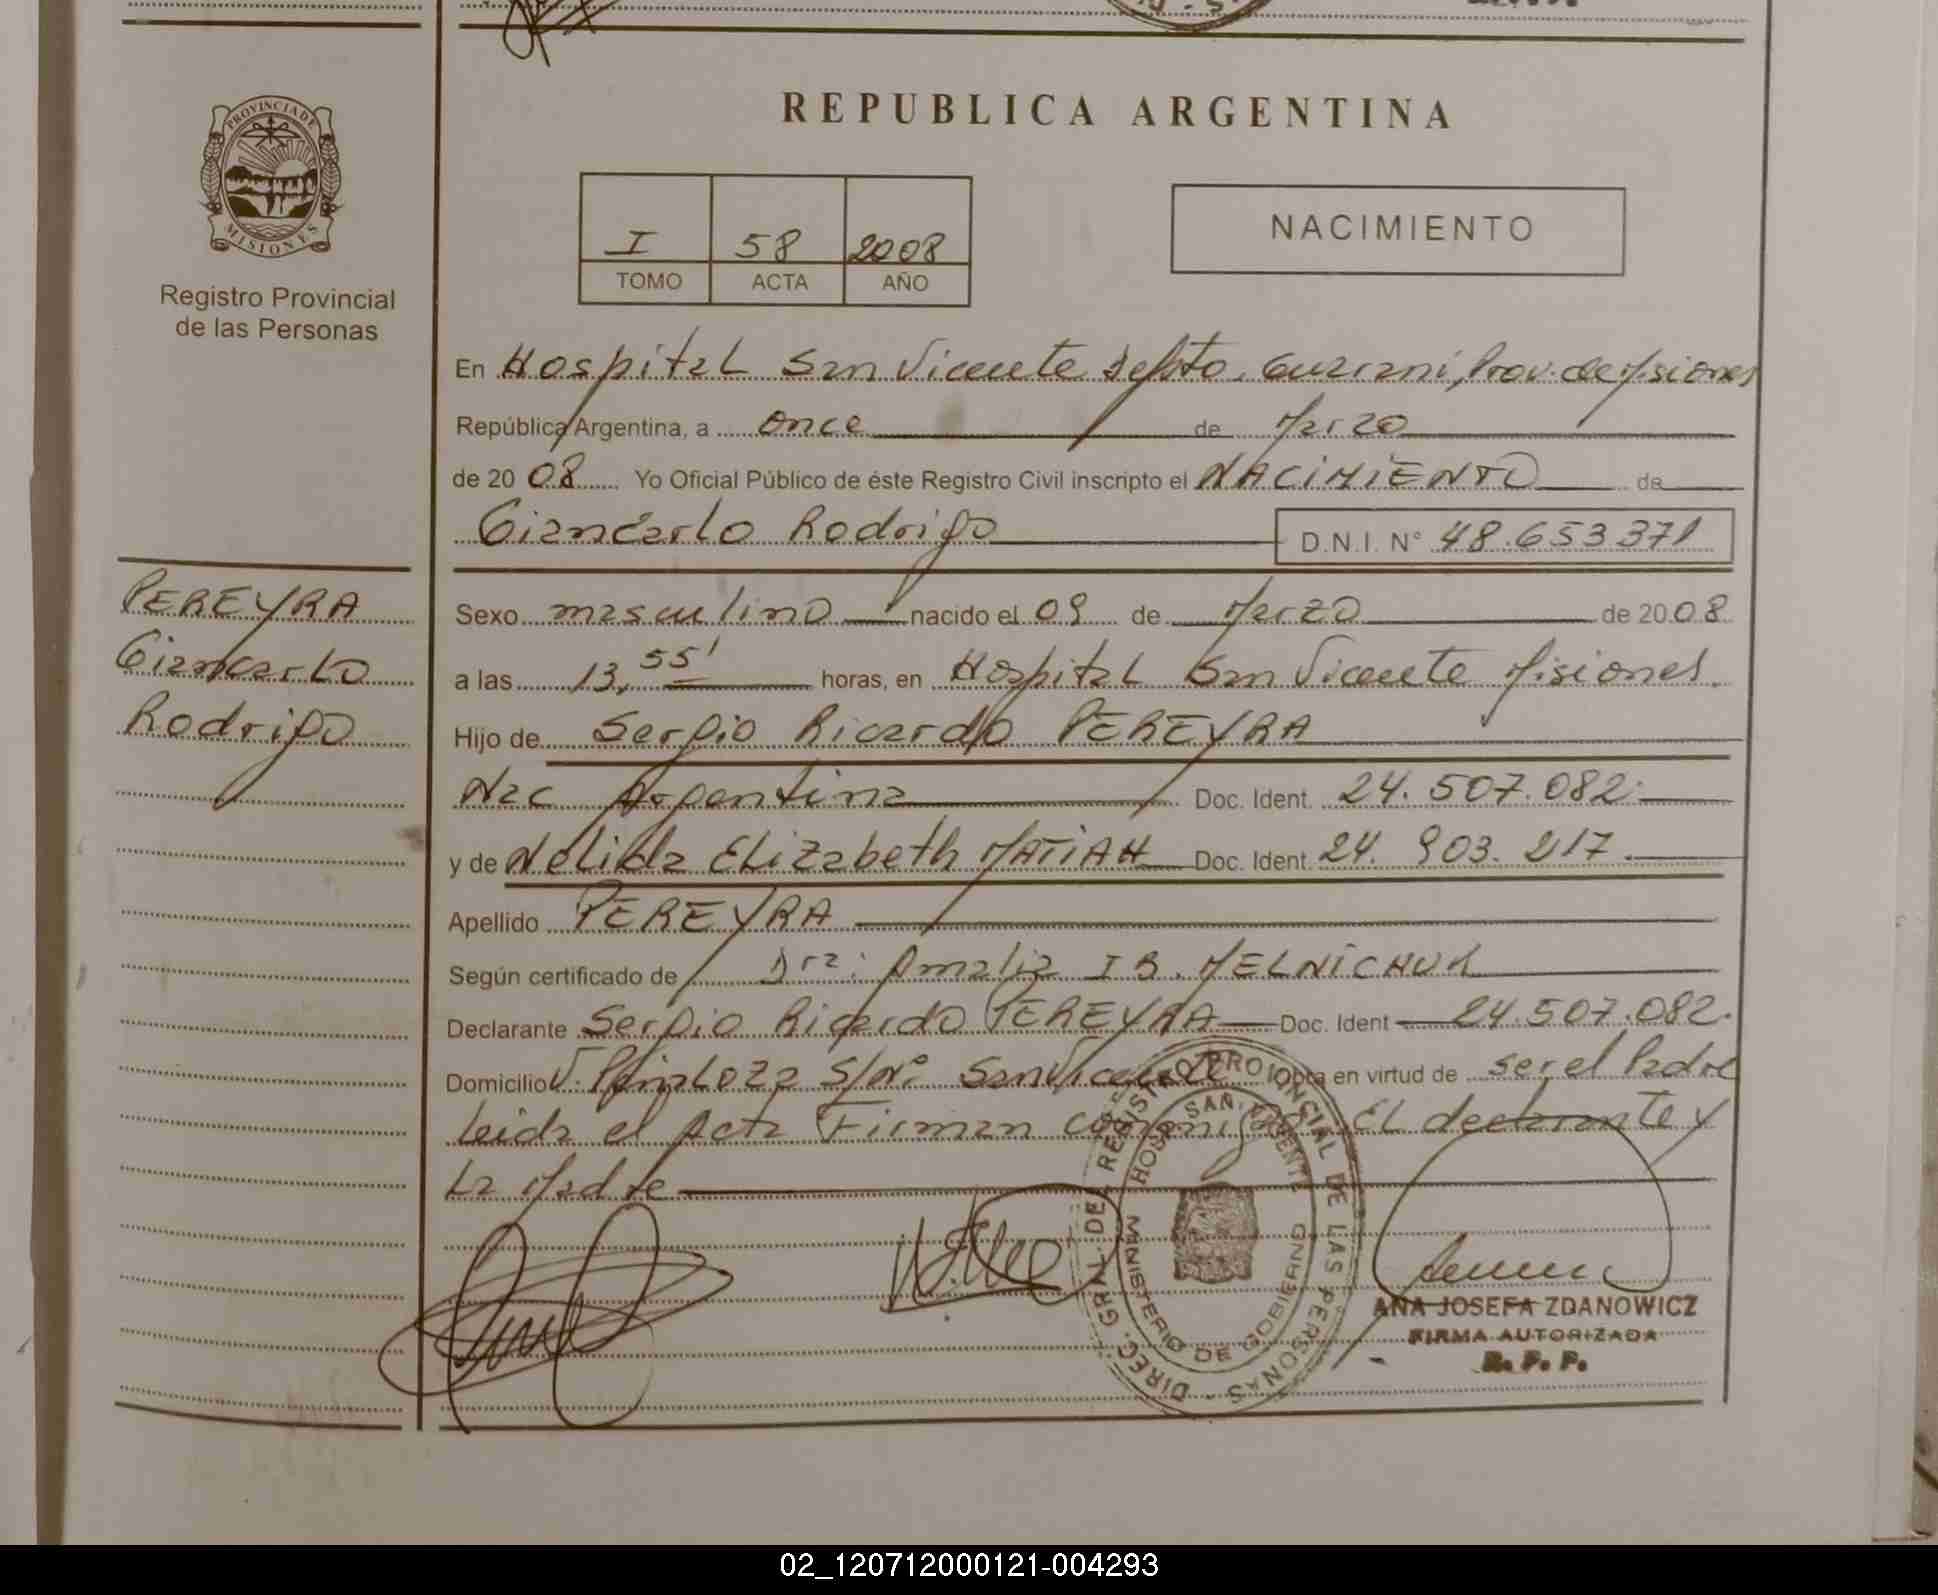 REPUBLICA ARGENTINA
PROVINCIA DE
MISIONES
Registro Provincial
de las Personas
I 58 2008
TOMO ACTA AÑO
NACIMIENTO
En Hospital San Vicente Depto. Guarani, Prov. de Misiones
República Argentina, a once de Marzo
de 2008 Yo Oficial Público de éste Registro Civil inscripto el NACIMIENTO de
Giancarlo Rodrigo D.N.I. N° 48.653371
PEREYRA
Giancarlo
Rodrigo
Sexo masculino nacido el 09 de Marzo de 2008
a las 13,55' horas, en Hospital San Vicente Misiones.
Hijo de Sergio Ricardo PEREYRA
Nac Argentina Doc. Ident. 24.507.082
y de Nelida Elizabeth MATIAH Doc. Ident. 24.903.217
Apellido PEREYRA
Según certificado de Dra: Amalia I B. MELNICHUK
Declarante Sergio Ricardo PEREYRA Doc. Ident 24.507.082.
Domicilio V. Peñaloza S/Nº San Vicente Obra en virtud de ser el Padre
Leida el Acta Firman conmigo El declarante y
La Madre
DIREC. GRAL. DEL REGISTRO PROVINCIAL DE LAS PERSONAS
HOSP. SAN VICENTE
MINISTERIO DE GOBIERNO
ANA JOSEFA ZDANOWICZ
FIRMA AUTORIZADA
R. P. P.
02_120712000121-004293